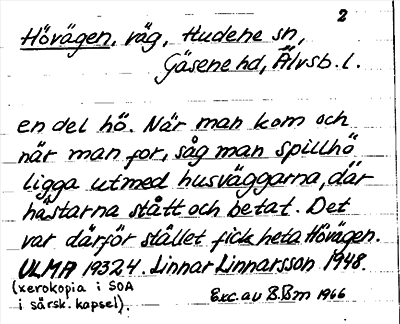 2
Hövägen, väg, Hudene sn,
Gäsene hd, Älvsb. l.
en del hö. När man kom och
när man for, såg man spillhö
ligga utmed husväggarna, där
hästarna stått och betat. Det
var därför stället fick heta Hövägen.
ULMA 19324. Linnar Linnarsson 1948.
(xerokopia i SOA
i särsk. kapsel).
Exc. av B.Bm 1966